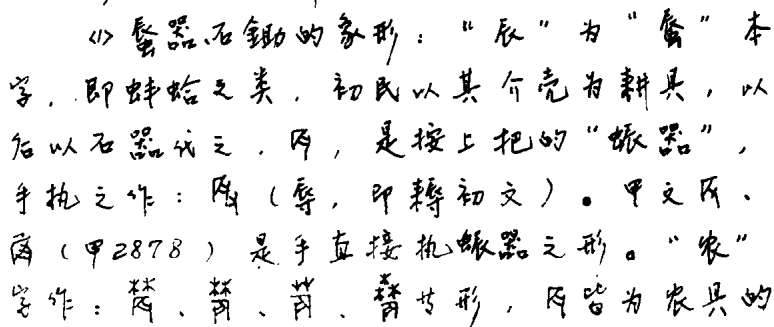 (1) 蜃器、石鋤的象形："辰"为"蜃"本
字，即蚌蛤之类，初民以其介壳为耕具，以
后以石器代之。，是按上把的"蜃器"，
手执之作：（辱，即耨初文）。甲文、
（甲2878）是手直接执蜃器之形。"农"
字作：、、、等形，皆为农具的